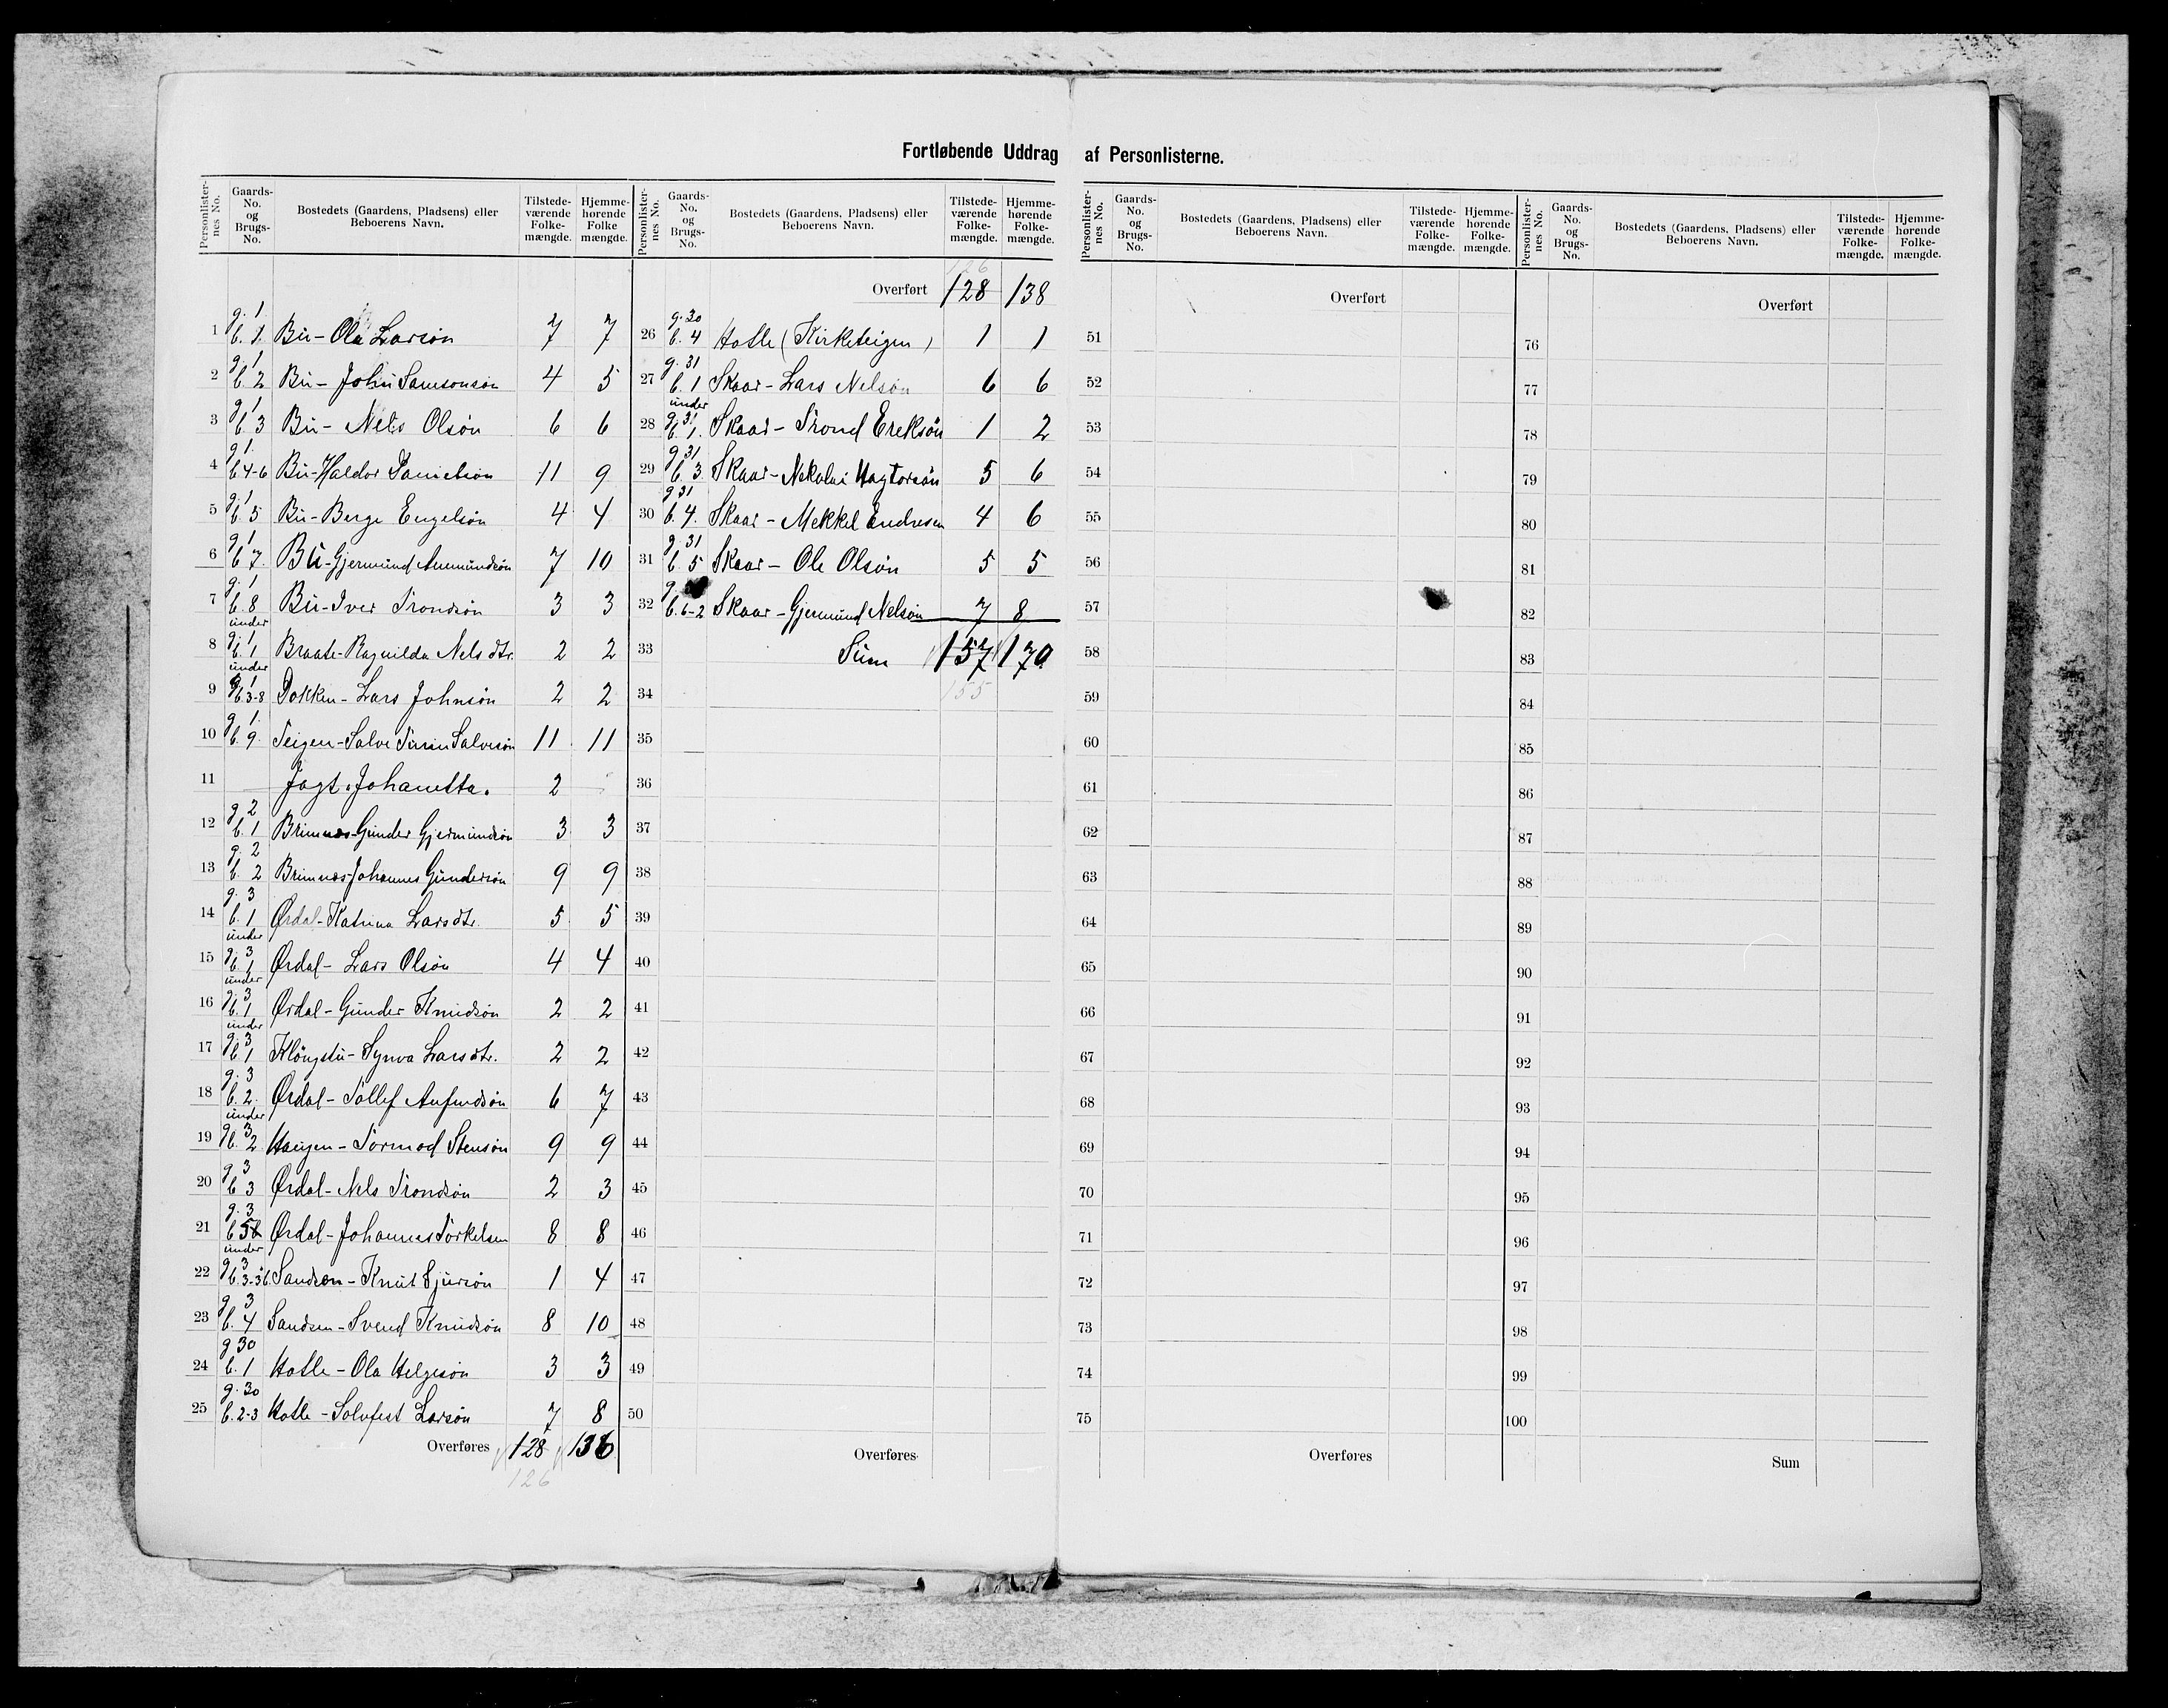 Fortløbende Uddrag af Personlisterne.
Personlister-nes No. | Gaards-No. og Brugs-No. | Bostedets (Gaardens, Pladsens) eller Beboerens Navn. | Tilstede-værende Folke-mængde. | Hjemme-hørende Folke mængde.
1 | g. 1 b. 1. | Bu - Ola Larsön | 7 | 7
2 | g. 1 b. 2 | Bu - John Samsonsön | 4 | 5
3 | g. 1 b. 3 | Bu - Nels Olsön | 6 | 6
4 | g. 1. b. 4-6 | Bu - Haldor Danielsön | 11 | 9
5 | g. 1 b. 5 | Bu - Berge Engelsön | 4 | 4
6 | g. 1 b. 7. | Bu - Gjermund Anmundsön | 7 | 10
7 | g. 1 b. 8 | Bu - Iver Trondsön | 3 | 3
8 | under g. 1 b. 1 | Braate - Ragnilda Nelsdtr. | 2 | 2
9 | under g. 1 b. 3-8 | Dokken - Lars Johnsön | 2 | 2
10 | g. 1. b. 9. | Teigen - Salve Tinn Salvesön | 11 | 11
11 | Jagt "Johanetta" | 2
12 | g. 2 b. 1 | Brimnæs - Gunder Gjermundsön | 3 | 3
13 | g. 2 b. 2 | Brimnæs - Johannes Gundersön | 9 | 9
14 | g. 3 b. 1 | Ørdal - Katrina Larsdtr. | 5 | 5
15 | under g. 3 b. 1 | Ørdal - Lars Olsön | 4 | 4
16 | under g. 3 b. 1 | Ørdal - Gunder Knudsön | 2 | 2
17 | under g. 3 b. 1 | Klöngstu - Synva Larsdtr. | 2 | 2
18 | g. 3 b. 2. | Ørdal - Tollef Anfindsön | 6 | 7
19 | under g. 3 b. 2 | Haugen - Tormod Stensön | 9 | 9
20 | g. 3 b. 3 | Ørdal - Nels Trondsön | 2 | 3
21 | g. 3 b. 5 | Ørdal - Johannes Torkelsen | 8 | 8
22 | under g. 3 b. 3-36. | Sandsen - Knut Sjursön | 1 | 4
23 | g. 3 b. 4 | Sandsen - Svend Knudsön | 8 | 10
24 | g. 30 b. 1 | Hotle - Ola Helgesön | 3 | 3
25 | g. 30 b. 2-3 | Hotle - Solvfest Larsön | 7 | 8
Overføres | 128 | 136
126
Personlister-nes No. | Gaards-No. og Brugs-No. | Bostedets (Gaardens, Pladsens) eller Beboerens Navn. | Tilstede-værende Folke-mængde. | Hjemme-hørende Folke-mængde.
126
Overført | 128 | 138
26 | g. 30 b. 4 | Hotle (Kirketeigen) | 1 | 1
27 | g. 31 b. 1 | Skaar - Lars Nelsön | 6 | 6
28 | under g. 31 b. 1. | Skaar - Trond Ereksön | 1 | 2
29 | g. 31 b. 3. | Skaar - Nekolai Hagtorsön | 5 | 6
30 | g. 31 b. 4. | Skaar - Mekkel Endresen | 4 | 6
31 | g. 31 b. 5 | Skaar - Ole Olsön | 5 | 5
32 | g. b. 6-2 | Skaar - Gjermund Nelsön | 7 | 8
33 | Sum | 157 | 170.
34 | 155
35
36
37
38
39
40
41
42
43
44
45
46
47
48
49
50
Overføres
Personlister-nes No. | Gaards-No. og Brugs-No. | Bostedets (Gaardens, Pladsens) eller Beboerens Navn. | Tilstede-værende Folke-mængde. | Hjemme-hørende Folke-mængde.
Overført
51
52
53
54
55
56
57
58
59
60
61
62
63
64
65
66
67
68
69
70
71
72
73
74
75
Overføres
Personlister-nes No. | Gaards-No. og Brugs-No. | Bostedets (Gaardens, Pladsens) eller Beboerens Navn. | Tilstede-værende Folke-mængde. | Hjemme-hørende Folke-mængde.
Overført
76
77
78
79
80
81
82
83
84
85
86
87
88
89
90
91
92
93
94
95
96
97
98
99
100
Sum